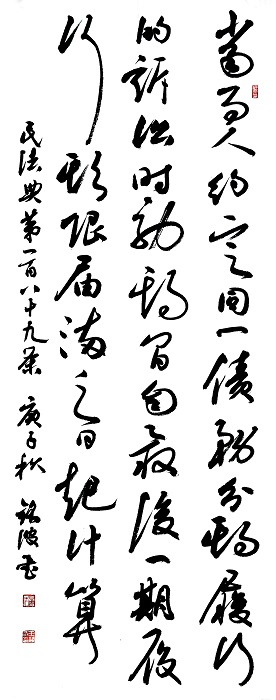 當事人约定同一债務分期履行
的訴讼时効期间自最後一期履
行期限届满之日起计算
民法典第一百八十九条 庚子秋 波书